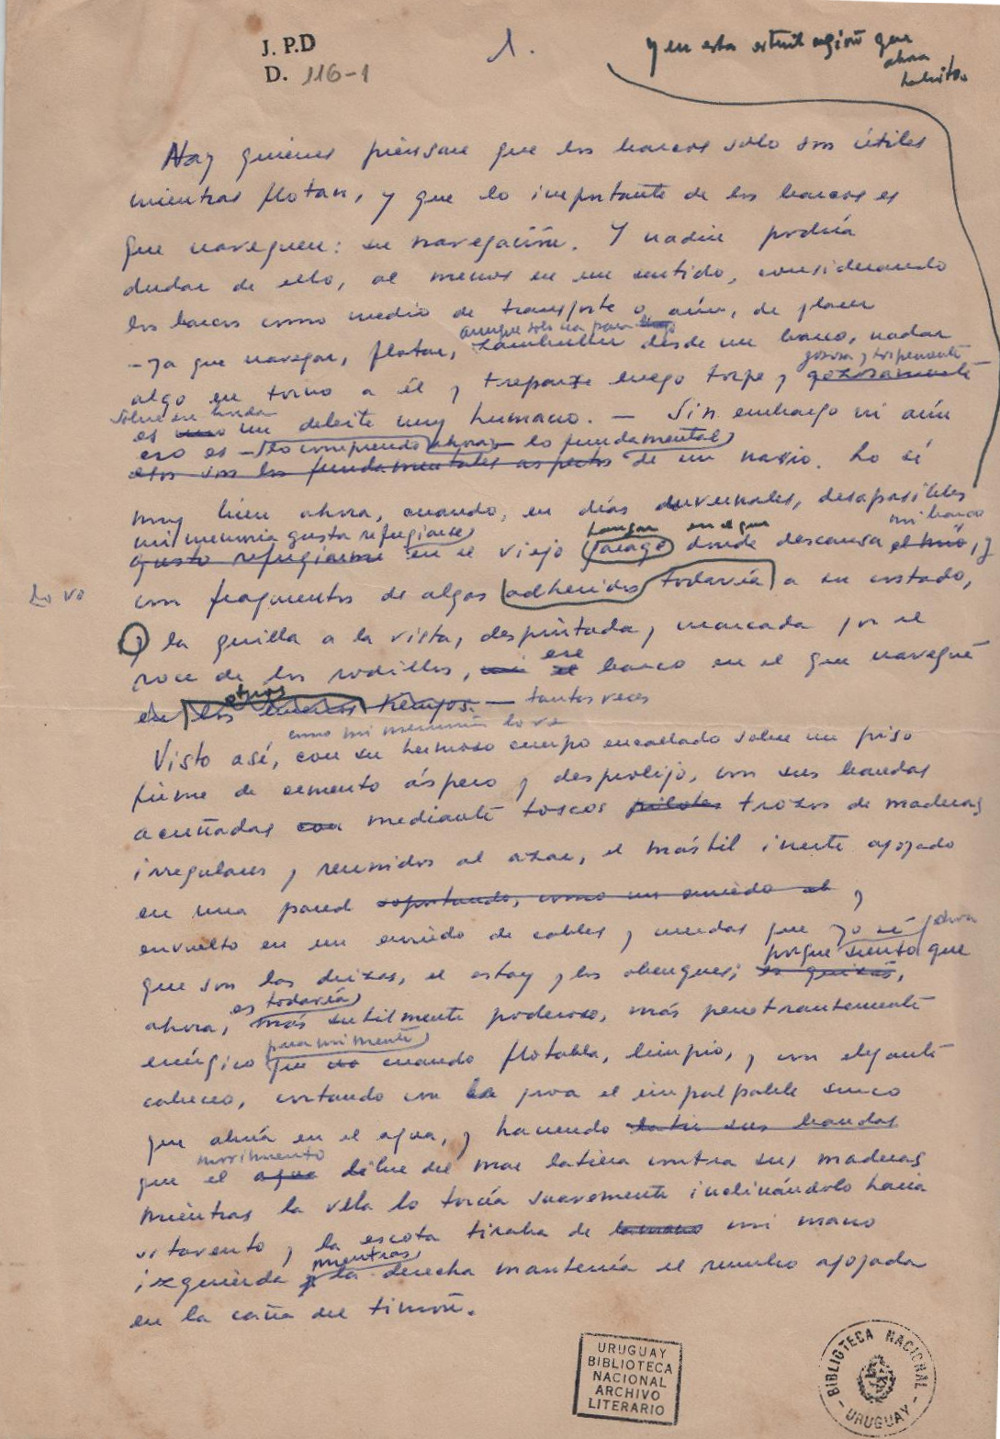 J. P.D
D. 116-1
1.
y en esta que
ahora
habito.
Hay quienes piensan que los barcos solo son útiles
mientras flotan, y que lo importante de los barcos es
que naveguen: su navegación. Y nadie podría
dudar de ello, al menos en un sentido, considerando
los barcos como medio de transporte o, aún, de placer
aunque solo sea para
- ya que navegar, flotar, zambullir desde un barco, nadar
gozosa y torpemente
algo en torno a él y treparse luego torpe y gozosamente
sobre en
es uno un deleite muy humano. - Sin embargo ni aún
eso es - lo comprendo ahora - lo fundamental
esos son los fundamentales aspectos de un navío. Lo sé
muy bien ahora, cuando, en días invernales, desapacibles
mi memoria gusta refugiarse hangar en el que mi barco
gusto refugiarme en el viejo garage donde descansa el mío, y
Lo vo
con fragmentos de algas adheridos todavía a su costado,
y la quilla a la vista, despintada, marcada por el
ese
roce de los rodillos, mi el barco en el que navegué
otros
en los buenos tiempos. - tantas veces
como mi memoria lo ve
Visto así, con su hermoso cuerpo encallado sobre un piso
firme de cemento áspero y desprolijo, con sus bandas
acuñadas con mediante toscos pilotes trozos de maderas
irregulares y reunidos al azar, el mástil inerte apoyado
en una pared soportando, como un enredo el y
envuelto en un enredo de cables y cuerdas que yo sé ahora
porque siento que
que son las drizas, el estay y los obenques; es quizás,
es todavía
ahora, más sutilmente poderoso, más penetrantemente
para mi mente
enérgico que no cuando flotaba, limpio, y con elegante
cabeceo, cortando con la proa el impalpable surco
que abría en el agua, y haciendo latir sus bandas
movimiento
que el agua libre del mar latiera contra sus maderas
mientras la vela lo torcía suavemente inclinándolo hacia
sotavento y la escota tiraba de la mano mi mano
mientras
izquierda y la derecha mantenía el rumbo apoyada
en la caña del timón.
URUGUAY
BIBLIOTECA
NACIONAL
ARCHIVO
LITERARIO
BIBLIOTECA NACIONAL
- URUGUAY -